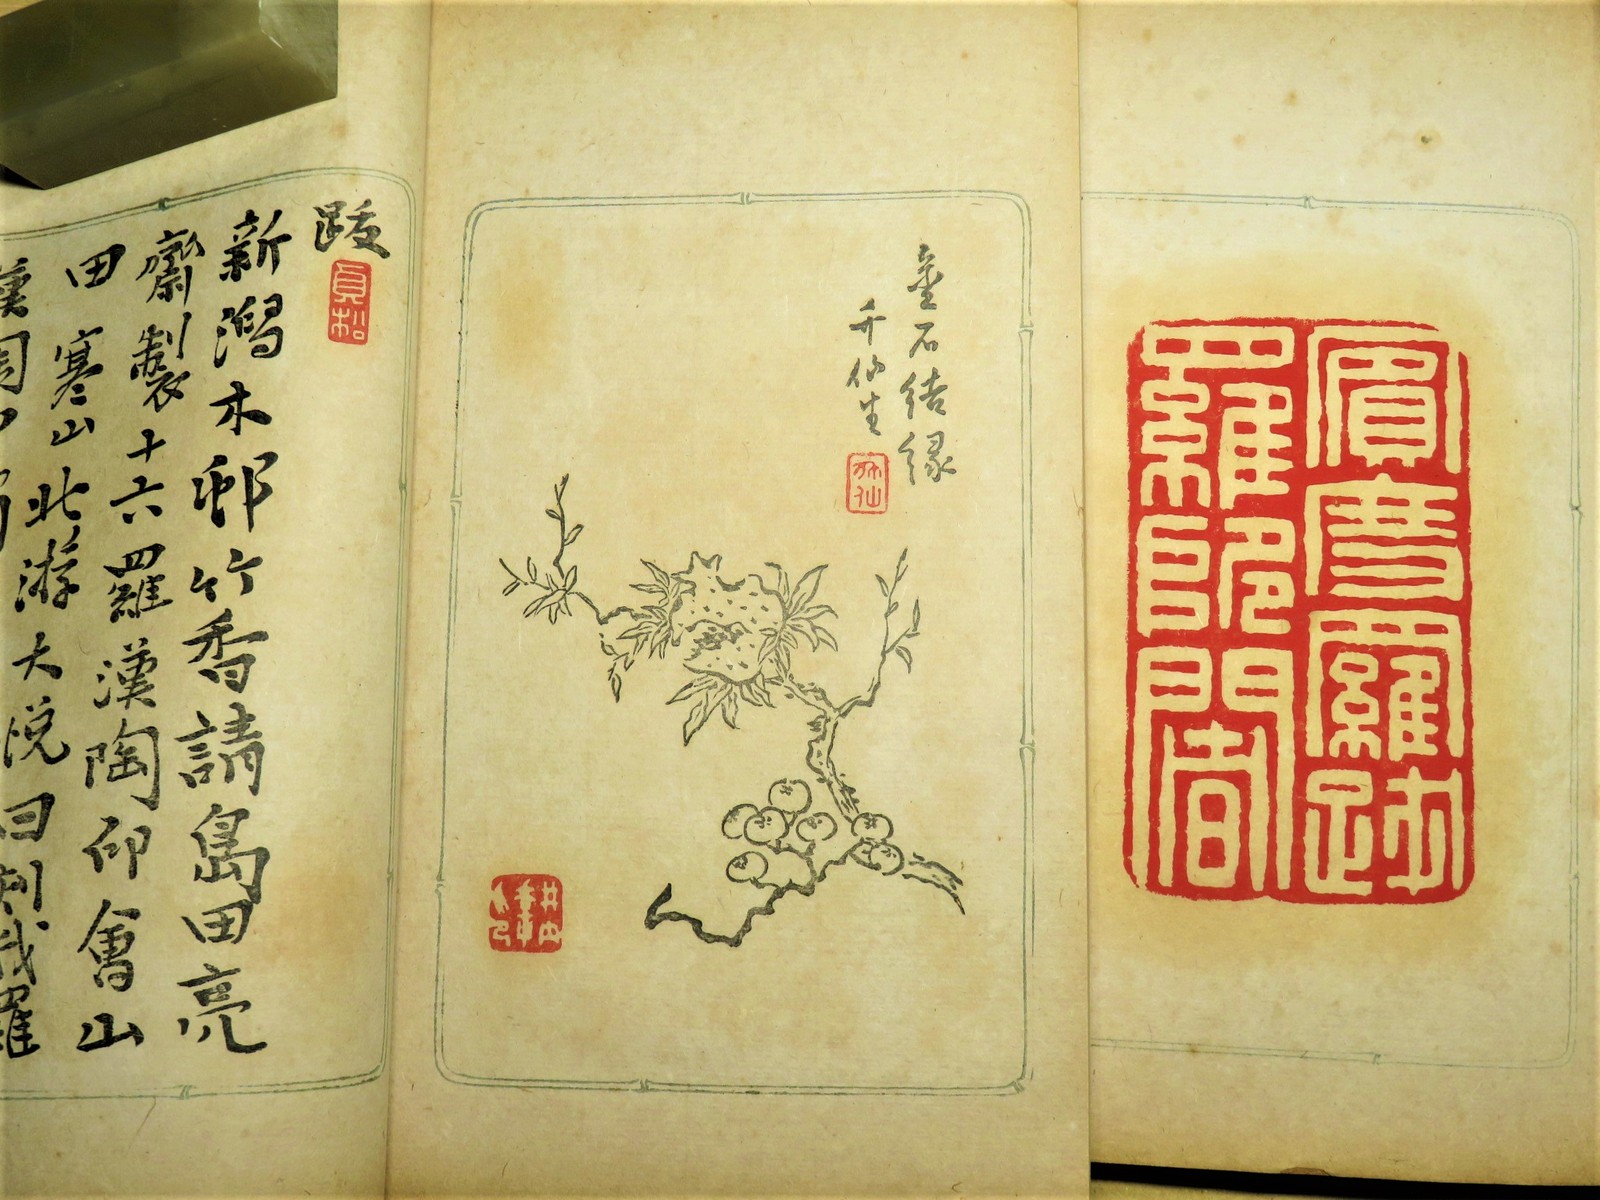 賓度羅跋
羅闍
金石結縁
仙生
跋
新潟木邨竹香請島田亮
齋製十六羅漢陶印會山
田寒山北游大悦曰刻我羅
漢